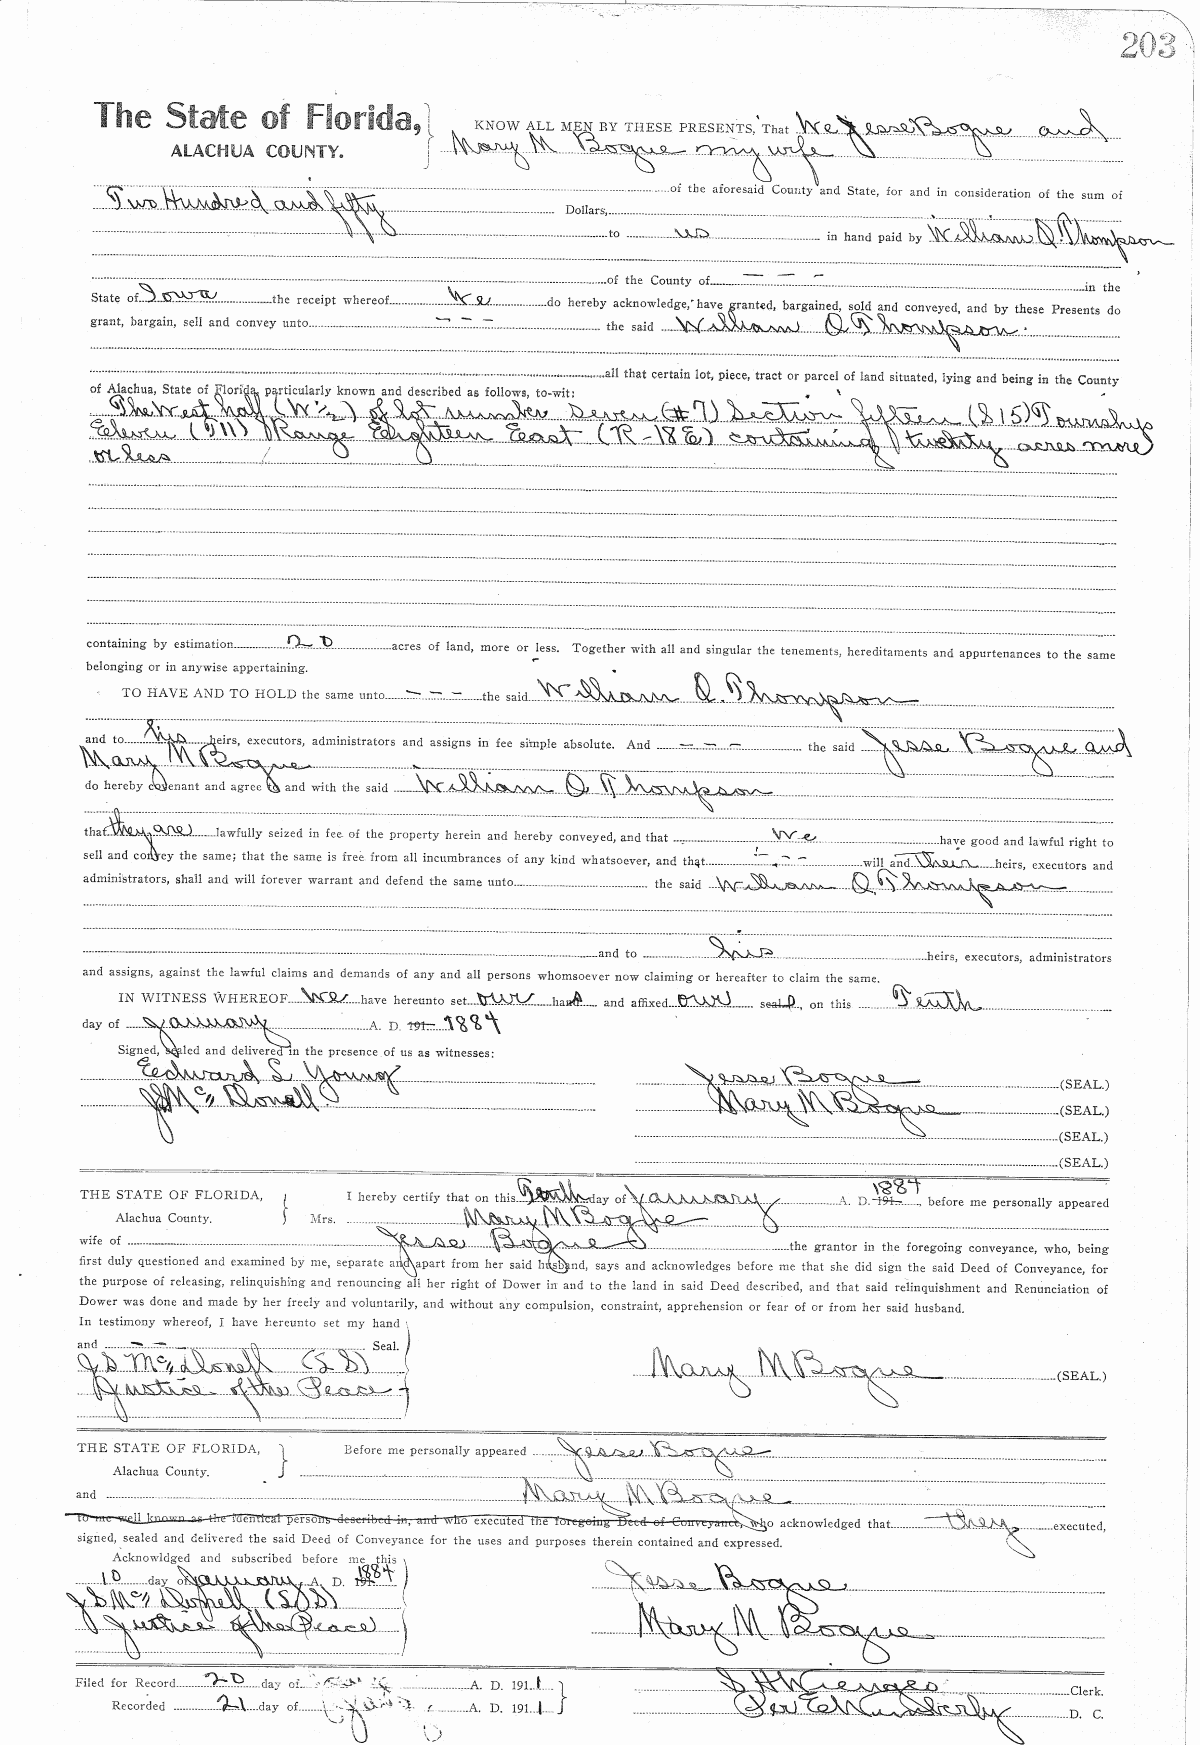 203
The State of Florida, KNOW ALL MEN BY THESE PRESENTS, That We Jesse Bogue and
ALACHUA COUNTY. Mary M Bogue my wife
of the aforesaid County and State, for and in consideration of the sum of
Two Hundred and fifty Dollars,
to us in hand paid by William O. Thompson
of the County of — — — in the
State of Iowa the receipt whereof We do hereby acknowledge, have granted, bargained, sold and conveyed, and by these Presents do
grant, bargain, sell and convey unto - - - the said William O Thompson.
all that certain lot, piece, tract or parcel of land situated, lying and being in the County
of Alachua, State of Florida, particularly known and described as follows, to-wit:
The West half (W ½) of lot number Seven (#7) Section fifteen (S 15) Township
Eleven (T11) Range Eighteen East (R-18E) containing twenty acres more
or less
containing by estimation 20 acres of land, more or less. Together with all and singular the tenements, hereditaments and appurtenances to the same
belonging or in anywise appertaining.
TO HAVE AND TO HOLD the same unto - - - the said William O. Thompson
and to his heirs, executors, administrators and assigns in fee simple absolute. And - - - the said Jesse Bogue and
Mary M Bogue
do hereby covenant and agree to and with the said William O Thompson
that they are lawfully seized in fee of the property herein and hereby conveyed, and that we have good and lawful right to
sell and convey the same; that the same is free from all incumbrances of any kind whatsoever, and that - - - will and their heirs, executors and
administrators, shall and will forever warrant and defend the same unto the said William O Thompson
and to his heirs, executors, administrators
and assigns, against the lawful claims and demands of any and all persons whomsoever now claiming or hereafter to claim the same.
IN WITNESS WHEREOF We have hereunto set our hands and affixed our seals, on this Tenth
day of January A. D. 191 1884
Signed, sealed and delivered in the presence of us as witnesses:
Edward S Young Jesse Bogue (SEAL.)
J S McDonell Mary M Bogue (SEAL.)
(SEAL.)
(SEAL.)
THE STATE OF FLORIDA, I hereby certify that on this Tenth day of January A. D. 191 1884, before me personally appeared
Alachua County. Mrs. Mary M Bogue
wife of Jesse Bogue the grantor in the foregoing conveyance, who, being
first duly questioned and examined by me, separate and apart from her said husband, says and acknowledges before me that she did sign the said Deed of Conveyance, for
the purpose of releasing, relinquishing and renouncing all her right of Dower in and to the land in said Deed described, and that said relinquishment and Renunciation of
Dower was done and made by her freely and voluntarily, and without any compulsion, constraint, apprehension or fear of or from her said husband.
In testimony whereof, I have hereunto set my hand
and - - Seal.
J S McDonell (L S) Mary M Bogue (SEAL.)
Justice of the Peace
THE STATE OF FLORIDA, Before me personally appeared Jesse Bogue
Alachua County.
and Mary M Bogue
to me well known as the identical persons described in, and who executed the foregoing Deed of Conveyance, who acknowledged that they executed,
signed, sealed and delivered the said Deed of Conveyance for the uses and purposes therein contained and expressed.
Acknowldged and subscribed before me this
10 day of January A. D. 191 1884 Jesse Bogue
J S McDonell (L S)
Justice of the Peace Mary M Bogue
Filed for Record 20 day of A. D. 191 1 S H Wienges Clerk.
Recorded 21 day of A. D. 191 1 Per E Wimberly D. C.